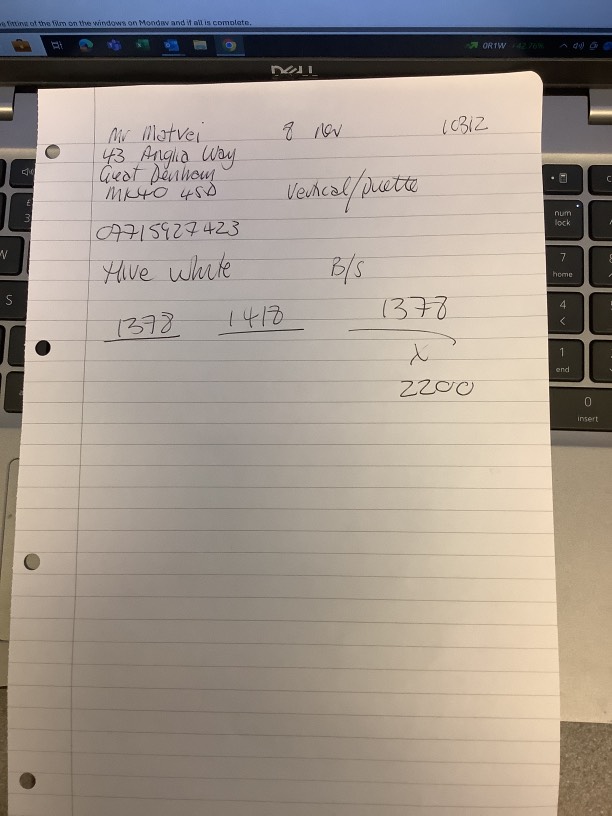 e fitting of the film on the windows on Monday and if all is complete.
OR1W +42.76%
DELL
Mr Matvei 8 Nov 10312
43 Anglia Way
Great Denham
MK40 4SD Vertical/Duette
07715927423
Hive White B/S
1378 1418 1378
x
2200
num lock
7 home
4 <
1 end
0 insert
W
S
3